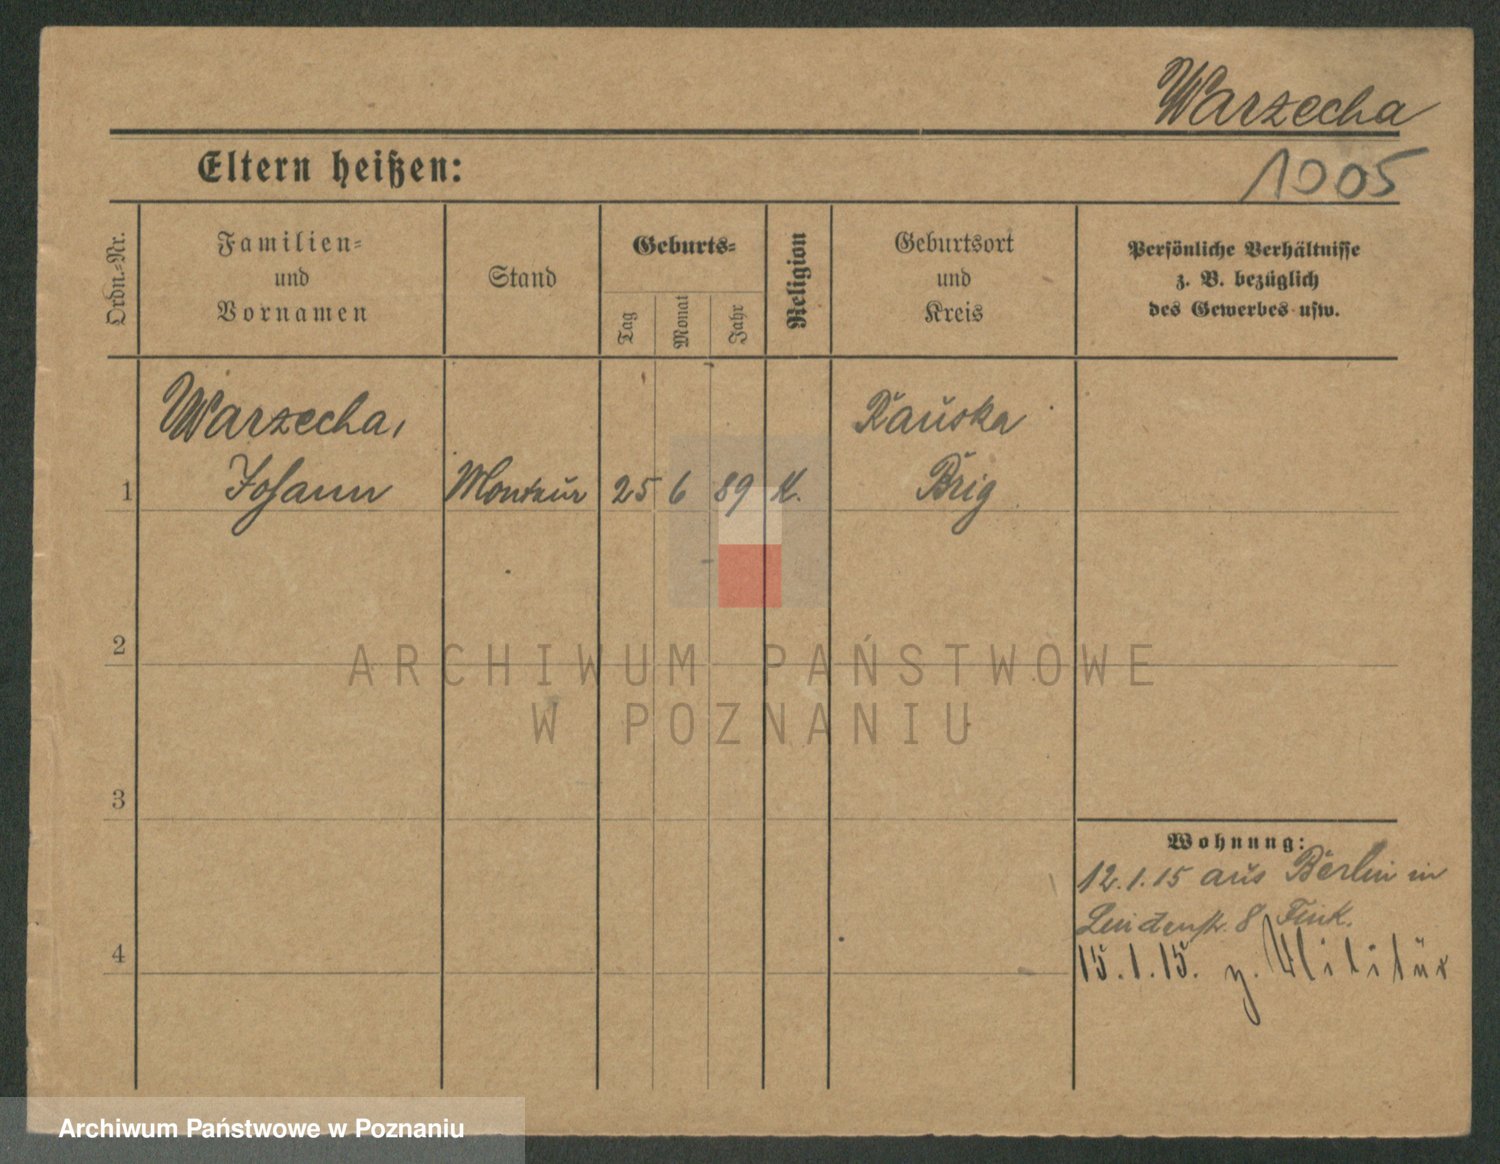 Warzecha
Eltern heißen:
1005
Ordn.-Nr.
Familien-
und
Vornamen
Stand
Geburts-
Tag
Monat
Jahr
Religion
Geburtsort
und
Kreis
Persönliche Verhältnisse
z. B. bezüglich
des Gewerbes usw.
Warzecha,
Johann
1
Monteur
25
6
89
K.
Kauska
Brig
2
ARCHIWUM PAŃSTWOWE
W POZNANIU
3
Wohnung:
12.1.15 aus Berlin in
Lindenstr. 8 Fink.
4
15.1.15. z. Militär
Archiwum Państwowe w Poznaniu